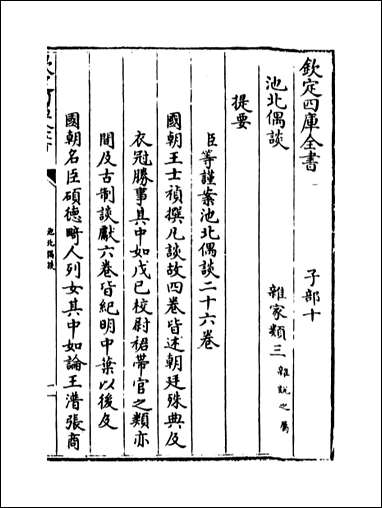 欽定四庫全書　子部十
池北偶談　雜家類三雜說之屬
提要
臣等謹案池北偶談二十六卷
國朝王士禎撰凡談故四卷皆述朝廷殊典及
衣冠勝事其中如戊已校尉裙帶官之類亦
間及古制談獻六卷皆紀明中葉以後及
國朝名臣碩德畸人列女其中如論王濳張商
池北偶談